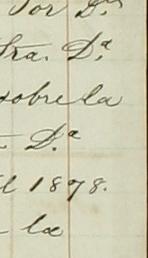 por Dn
Sra. Da
sobre la
Da
l 1878.
la